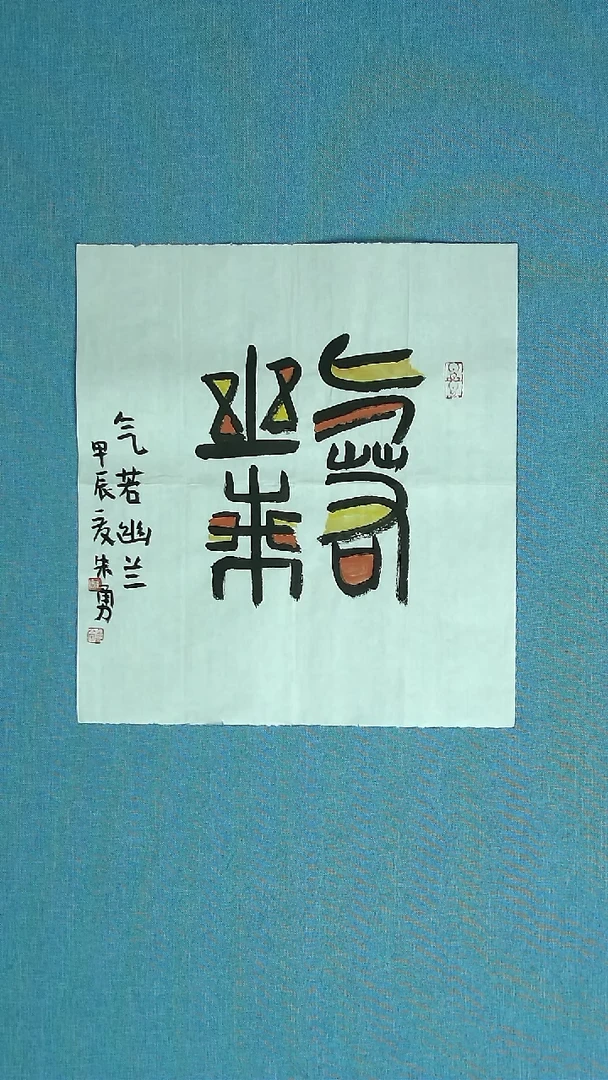 气若
幽兰
气若幽兰
甲辰夏朱勇